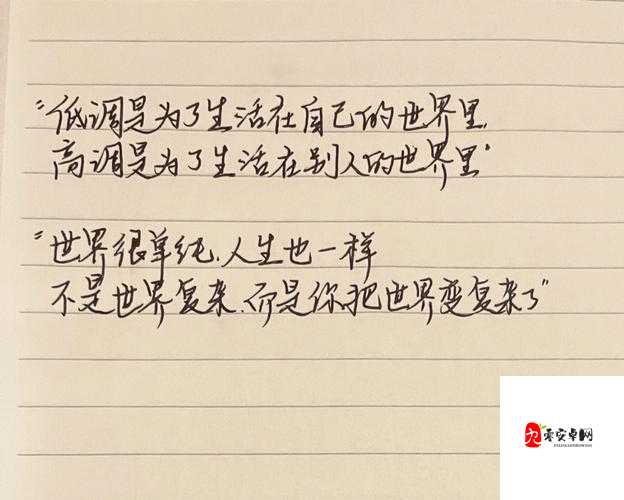 “低调是为了生活在自己的世界里,
高调是为了生活在别人的世界里”
“世界很单纯.人生也一样
不是世界复杂.而是你把世界变复杂了”
零安卓网